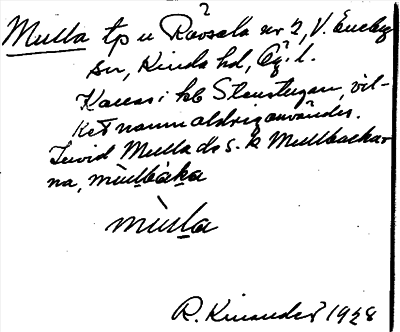 Mulla tp u Råvsala nr 2, V. Eneby
sn, Kinda hd, Ög. l.
Kallas i kb Stenstugan, vil-
ket namn aldrig användes.
Invid Mulla ds. s. k Mullbackar
na, mùlbàka
mùla
R. Kinander 1928